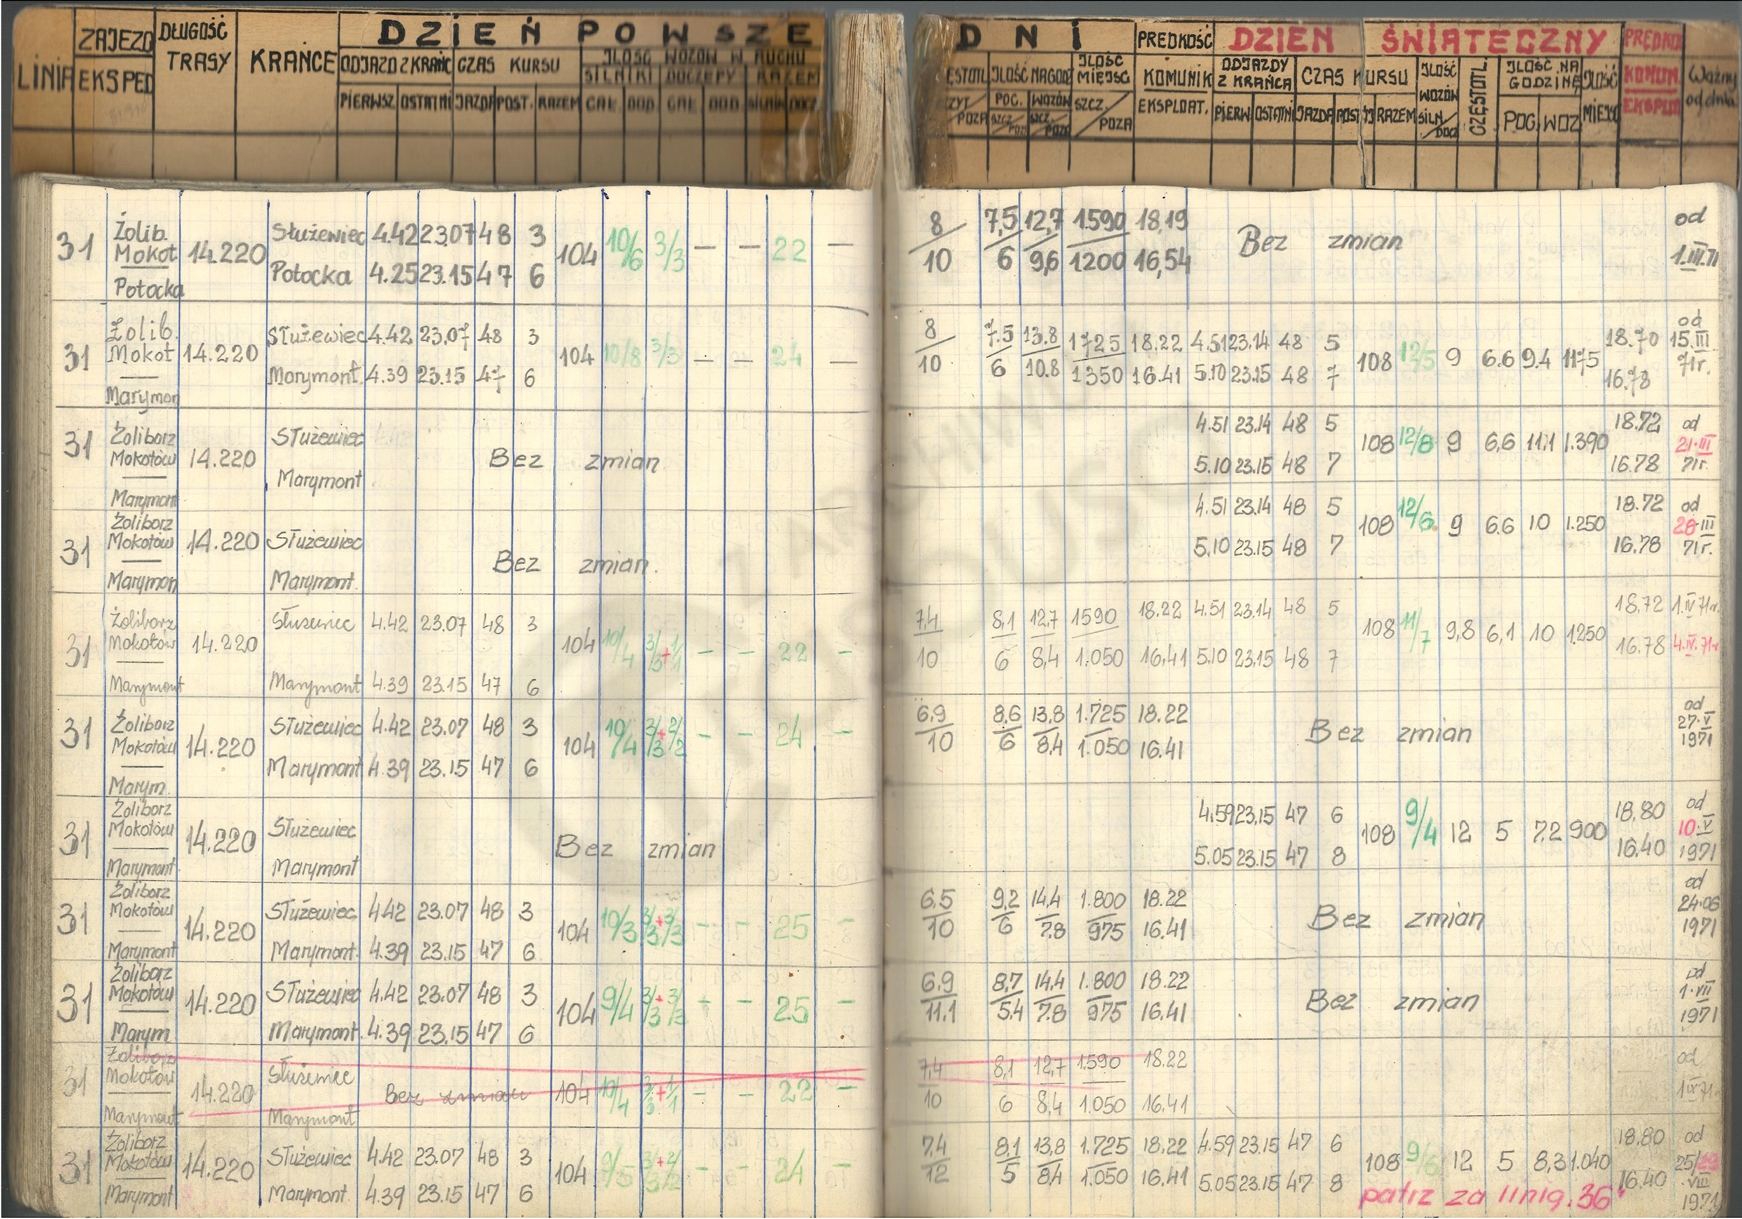 ZAJEZD DŁUGOŚĆ DZIEŃ POWSZE DNI PRĘDKOŚĆ DZIEŃ ŚWIĄTECZNY PRĘDKO
LINIA EKSPED TRASY KRAŃCE ODJAZD Z KRAŃC CZAS KURSU ILOŚĆ WOZÓW W RUCHU ILOŚĆ NA GODZ ILOŚĆ MIEJSC KOMUNIK ODJAZDY Z KRAŃCA CZAS KURSU ILOŚĆ CZĘSTOTL. ILOŚĆ NA GODZINĘ ILOŚĆ KOMUN. Ważny od dnia
SILNIKI DOCZEPY RAZEM
PIERWSZ. OSTATNI JAZDA POST. RAZEM CAŁ. DOD. CAŁ. DOD. POZA POC. WOZÓW SZCZ. POZA EKSPLOAT. PIERW OSTATNI JAZDA RAZEM WOZÓW SILN. DOCZ POC. WOZ MIEJSC EKSPLO
31 Żolib. Mokot Potocka 14.220 Służewiec 4.42 23.07 48 3 104 10/6 3/3 — — 22 — 8/10 7,5/6 12,7/9,6 1590/1200 18,19 16,54 Bez zmian od 1.III.71
Potocka 4.25 23.15 47 6
31 Żolib. Mokot Marymon 14.220 Służewiec 4.42 23.07 48 3 104 10/8 3/3 — — 24 — 8/10 7.5/6 13.8/10.8 1725/1350 18.22 16.41 4.51 23.14 48 5 108 12/5 9 6.6 9.4 1175 18.70 16.78 od 15.III 71r.
Marymont. 4.39 23.15 47 6 5.10 23.15 48 7
31 Żoliborz Mokotów Marymont 14.220 Służewiec Bez zmian 4.51 23.14 48 5 108 12/8 9 6,6 11,1 1.390 18.72 16.78 od 21.III 71r.
Marymont 5.10 23.15 48 7
31 Żoliborz Mokotów Marymon 14.220 Służewiec Bez zmian. 4.51 23.14 48 5 108 12/6 9 6.6 10 1.250 18.72 16.78 od 28.III 71r.
Marymont. 5.10 23.15 48 7
31 Żoliborz Mokotów Marymont 14.220 Służewiec 4.42 23.07 48 3 104 10/4 3/3+1/1 — — 22 — 7,4/10 8,1/6 12,7/8,4 1590/1.050 18.22 16,41 4.51 23.14 48 5 108 11/7 9,8 6,1 10 1250 18,72 16.78 1.IV.71r. 4.IV.71r
Marymont 4.39 23.15 47 6 5.10 23.15 48 7
31 Żoliborz Mokotów Marym. 14.220 Służewiec 4.42 23.07 48 3 104 10/4 3/3+2/2 — — 24 — 6,9/10 8,6/6 13,8/8,4 1.725/1.050 18.22 16.41 Bez zmian od 27.V 1971
Marymont 4.39 23.15 47 6
31 Żoliborz Mokotów Marymont 14.220 Służewiec Bez zmian 4.59 23.15 47 6 108 9/4 12 5 7,2 900 18,80 16.40 od 10.V 1971
Marymont 5.05 23.15 47 8
31 Żoliborz Mokotów Marymont 14.220 Służewiec 4.42 23.07 48 3 104 10/3 3/3+3/3 — — 25 — 6.5/10 9,2/6 14,4/7.8 1.800/975 18.22 16.41 Bez zmian od 24.06 1971
Marymont. 4.39 23.15 47 6
31 Żoliborz Mokotów Marym 14.220 Służewiec 4.42 23.07 48 3 104 9/4 3/3+3/3 — — 25 — 6.9/11.1 8,7/5,4 14,4/7.8 1.800/975 18.22 16.41 Bez zmian od 1.VII 1971
Marymont 4.39 23.15 47 6
31 Żoliborz Mokotów Marymont 14.220 Służewiec Bez zmian 104 10/4 3/3+1/1 — — 22 — 7,4/10 8,1/6 12,7/8,4 1.590/1.050 18.22 16,41 od
Marymont
31 Żoliborz Mokotów Marymont 14.220 Służewiec 4.42 23.07 48 3 104 9/5 3/3+2/2 — — 24 — 7,4/12 8,1/5 13,8/8,4 1.725/1.050 18,22 16,41 4.59 23.15 47 6 108 9/6 12 5 8,3 1.040 18.80 16.40 od 25/29 VIII 1971
Marymont. 4.39 23.15 47 6 5.05 23.15 47 8
patrz za linią "36"